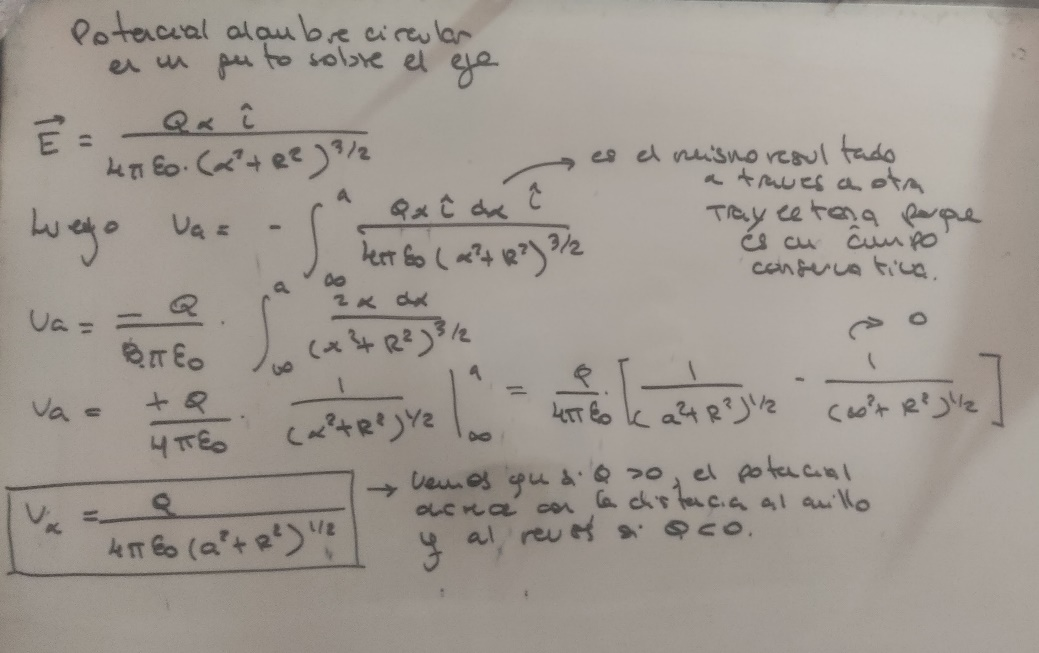 Potencial alambre circular
en un punto sobre el eje
E⃗ = Qx î / 4πε₀·(x²+R²)^3/2
→ es el mismo resultado
a traves a otra
trayectoria porque
es un campo
conservativo.
Luego Va = - ∫_∞^a Qx î dx î / 4πε₀(x²+R²)^3/2
Va = -Q / 8πε₀ · ∫_∞^a 2x dx / (x²+R²)^3/2
Va = +Q / 4πε₀ · 1 / (x²+R²)^1/2 |_∞^a = Q / 4πε₀ [ 1 / (a²+R²)^1/2 - 1 / (∞²+R²)^1/2 ] → 0
Vx = Q / 4πε₀(a²+R²)^1/2
→ vemos que si Q>0, el potencial
con la distancia al anillo
y al reves si Q<0.